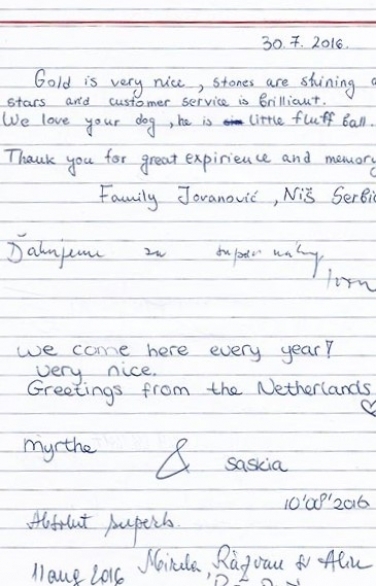 30.7.2016.
Gold is very nice, stones are shining a
stars and customer service is brilliant.
We love your dog, he is little fluff ball.
Thank you for great expirience and memory
Family Jovanović, Niš Serbia
Ďakujeme za
We come here every year!
Very nice.
Greetings from the Netherlands
♡
Myrthe & Saskia
10'08'2016
Absolut superb.
11 aug 2016 Mirela, Răzvan & Alin